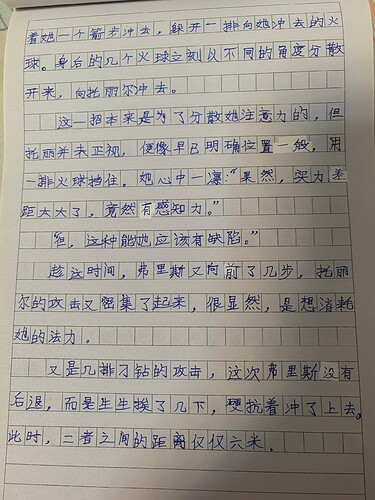 着她一个箭步冲去，躲开一排向她冲去的火
球。身后的几个火球立刻以不同的角度分散
开来，向托丽尔冲去。
这一招本来是为了分散她注意力的，但
托丽并未正视，便像早已明确位置一般，用
一排火球挡住。她心中一凛：“果然，实力差
距太大了，竟然有感知力。”
“但，这种能力也应该有缺陷。”
趁这时间，弗里斯又向前了几步，托丽
尔的攻击又密集了起来，很显然，是想消耗
她的法力。
又是几排刁钻的攻击，这次弗里斯没有
后退，而是生生挨了几下，硬抗着冲了上去。
此时，二者之间的距离仅仅六米。